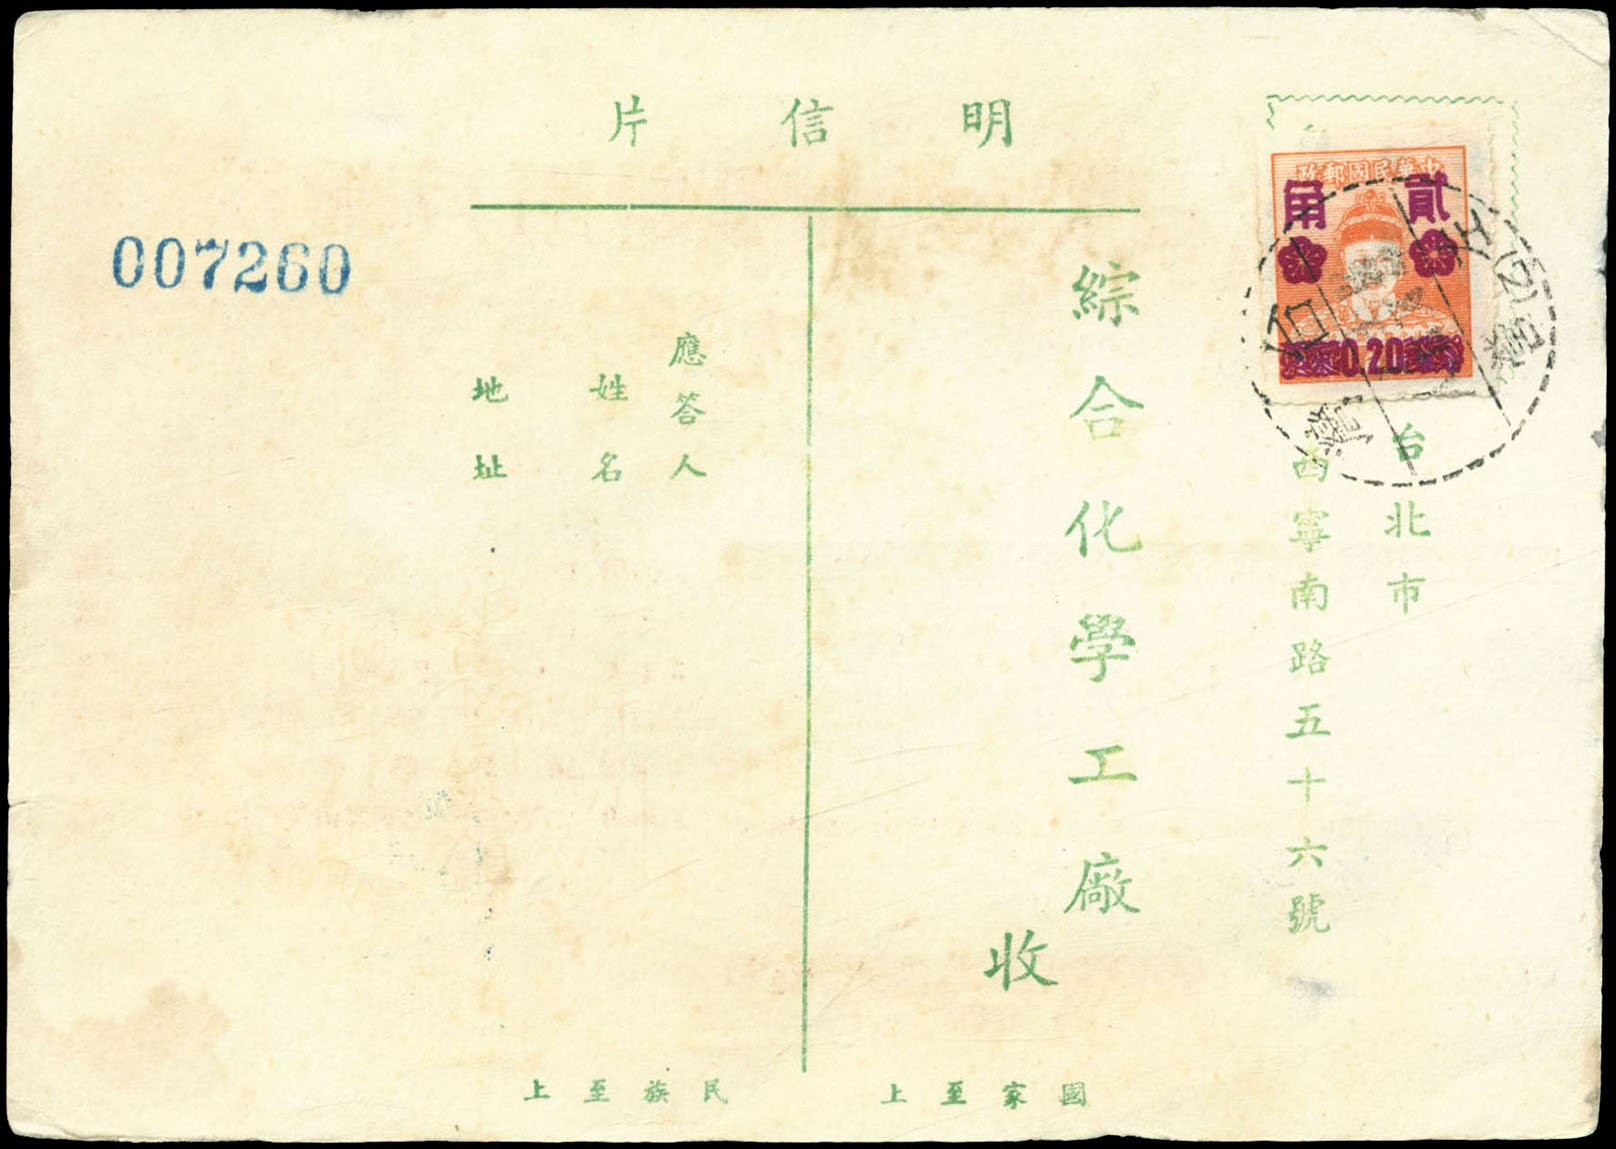 明信片
中華民國郵政
貳角
0.20
007260
台北市
西寧南路五十六號
綜合化學工廠
收
應答人
姓名
地址
國家至上
民族至上